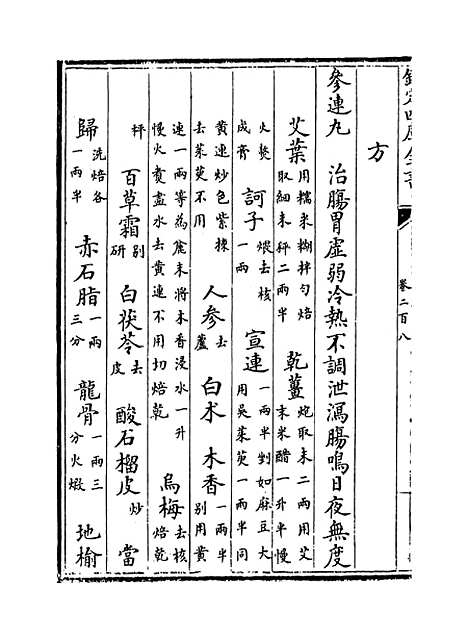 欽定四庫全書 卷二百八
方
參連丸 治腸胃虛弱冷熱不調泄瀉腸鳴日夜無度
艾葉 用糯米糊拌勻焙取細末秤二兩半 乾薑 炮取末二兩用艾末米醋一升半慢
火熬成膏 訶子 煨去核一兩 宣連 一兩半剉如麻豆大用吳茱萸一兩半同
黃連炒色紫揀去茱萸不用 人參 去蘆 白术 木香 一兩半別用黃
連一兩等為麄末將木香浸水一升慢火煑盡水去黃連不用切焙乾 烏梅 去核焙乾
秤 百草霜 別研 白茯苓 去皮 酸石榴皮 炒 當
歸 洗焙各一兩半 赤石脂 一兩三分 龍骨 一兩三分火煅 地榆